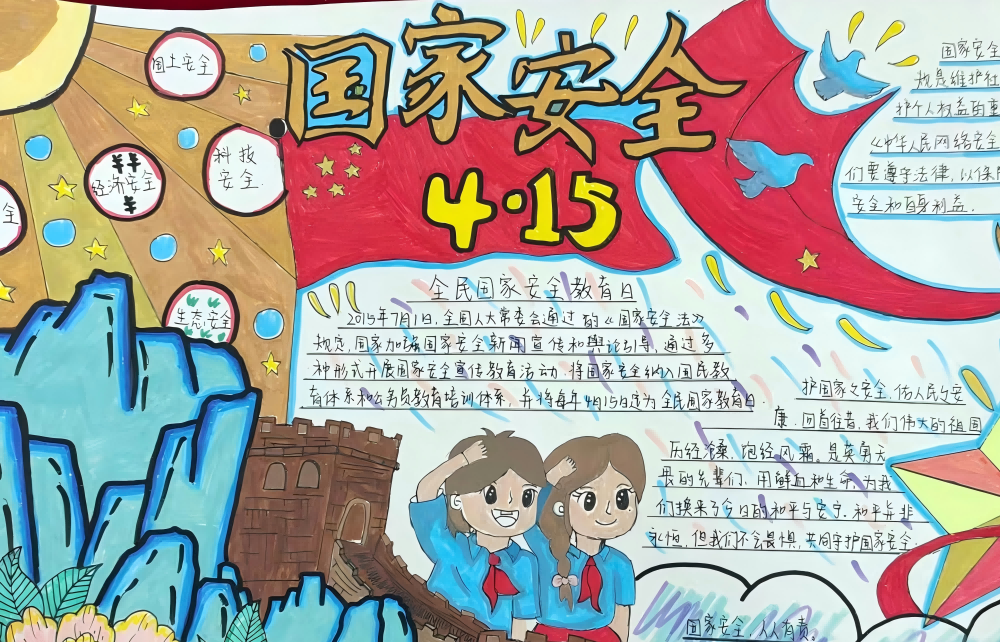 国家安全
4·15
国土安全
科技
安全.
经济安全
全
生态安全
国家安全
规是维护社
护个人权益的重
《中华人民网络安全
们要遵守法律,以保障
安全和自身利益.
全民国家安全教育日
2015年7月1日,全国人大常委会通过的《国家安全法》
规定国家加强国家安全新闻宣传和舆论引导,通过多
种形式开展国家安全宣传教育活动.将国家安全纳入国民教
育体系和公务员教育培训体系,并将每年4月15日定为全民国家教育日.
护国家之安全,佑人民之安
康.回首往昔,我们伟大的祖国
历经沧桑,饱经风霜。是英勇无
畏的先辈们,用鲜血和生命,为我
们换来了今日的和平与安宁.和平并非
永恒.但我们不会畏惧,共同守护国家安全.
国家安全,人人有责.